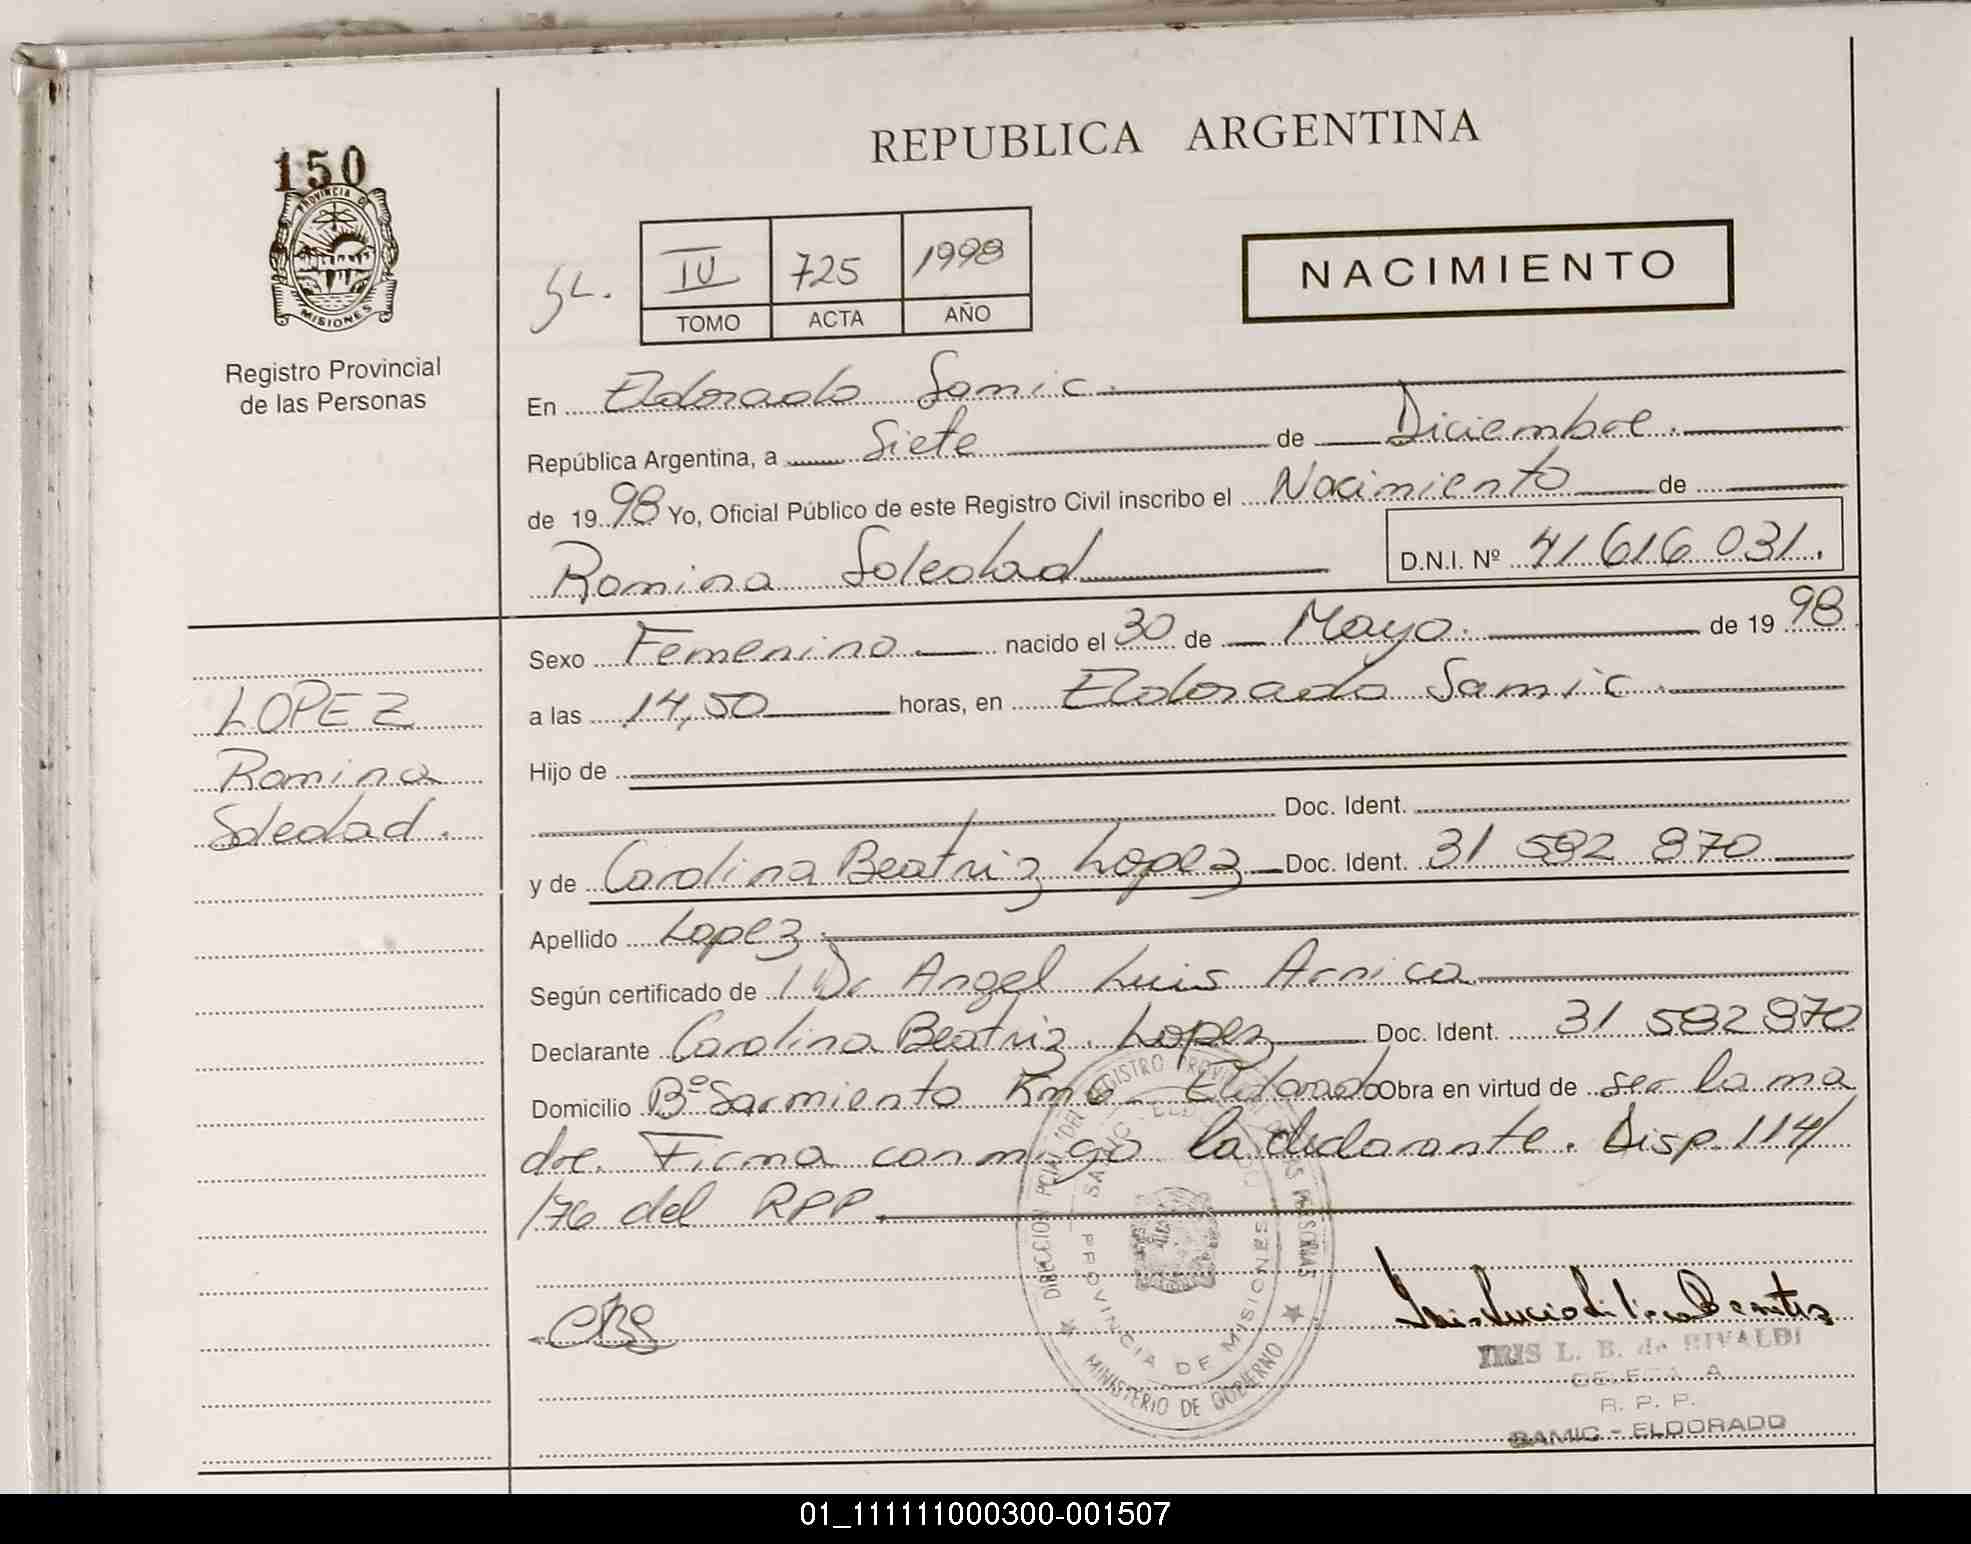 REPUBLICA ARGENTINA
150
PROVINCIA D
MISIONES
Registro Provincial
de las Personas
IV 725 1998
TOMO ACTA AÑO
NACIMIENTO
En Eldorado Samic.
República Argentina, a Siete de Diciembre.
de 1998 Yo, Oficial Público de este Registro Civil inscribo el Nacimiento de
Romina Soledad D.N.I. Nº 41 616 031.
Sexo Femenino nacido el 30 de Mayo. de 1998
a las 14,50 horas, en Eldorado Samic.
Hijo de
Doc. Ident.
y de Carolina Beatriz Lopez Doc. Ident. 31 582 870
Apellido Lopez.
Según certificado de Dr Angel Luis Arnica
Declarante Carolina Beatriz Lopez Doc. Ident. 31 582 870
Domicilio Bº Sarmiento Km 6 Eldorado Obra en virtud de ser la ma
dre. Firma conmigo la declarante. Disp. 114/
/76 del RPP.
LOPEZ
Romina
Soledad.
DIRECCION PCIAL DEL REGISTRO PROVINCIAL DE LAS PERSONAS
MINISTERIO DE GOBIERNO
PROVINCIA DE MISIONES
IRIS L. B. de RIVALDI
R. P. P.
SAMIC - ELDORADO
01_111111000300-001507